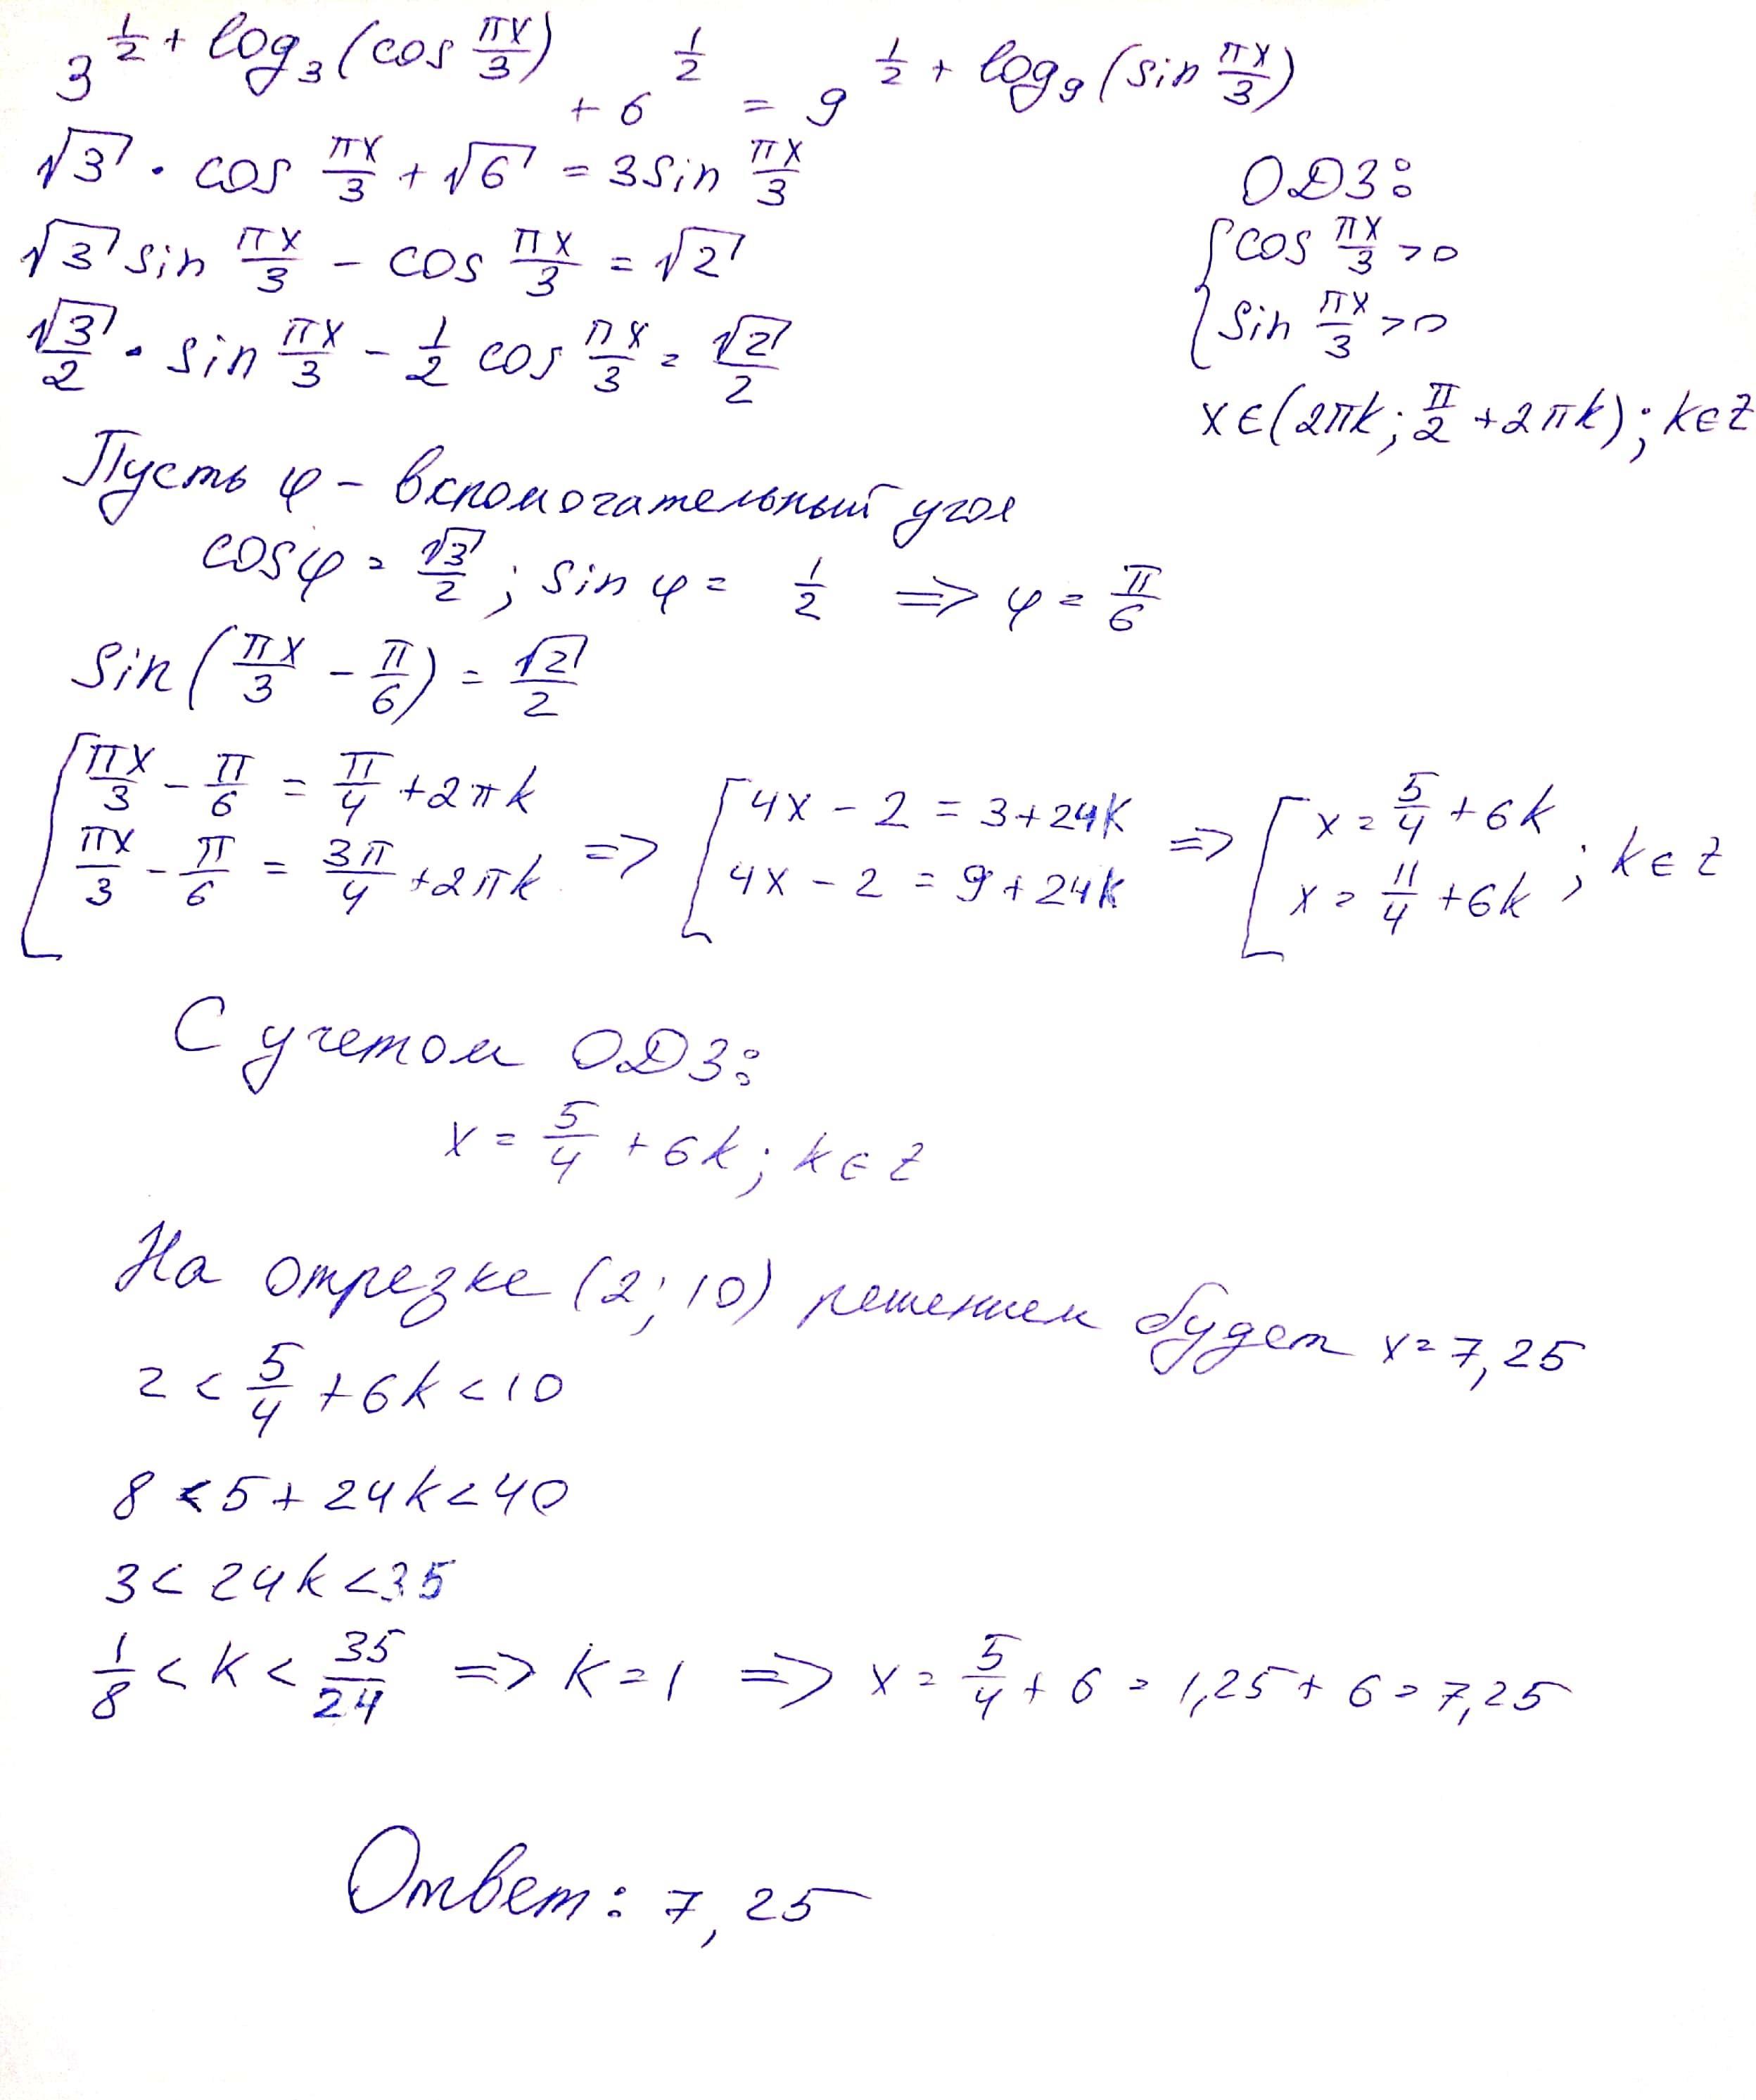 3^{1/2 + log_3(cos πx/3)} + 6^{1/2} = 9^{1/2 + log_9(sin πx/3)}
√3 · cos πx/3 + √6 = 3 sin πx/3
ОДЗ:
√3 sin πx/3 - cos πx/3 = √2
{ cos πx/3 > 0
sin πx/3 > 0
√3/2 · sin πx/3 - 1/2 cos πx/3 = √2/2
x ∈ (2πk; π/2 + 2πk); k ∈ Z
Пусть φ - вспомогательный угол
cos φ = √3/2; sin φ = 1/2 => φ = π/6
sin(πx/3 - π/6) = √2/2
[ πx/3 - π/6 = π/4 + 2πk => [ 4x - 2 = 3 + 24k => [ x = 5/4 + 6k
πx/3 - π/6 = 3π/4 + 2πk 4x - 2 = 9 + 24k x = 11/4 + 6k ; k ∈ Z
С учетом ОДЗ:
x = 5/4 + 6k; k ∈ Z
На отрезке (2; 10) решением будет x = 7,25
2 < 5/4 + 6k < 10
8 < 5 + 24k < 40
3 < 24k < 35
1/8 < k < 35/24 => k = 1 => x = 5/4 + 6 = 1,25 + 6 = 7,25
Ответ: 7,25